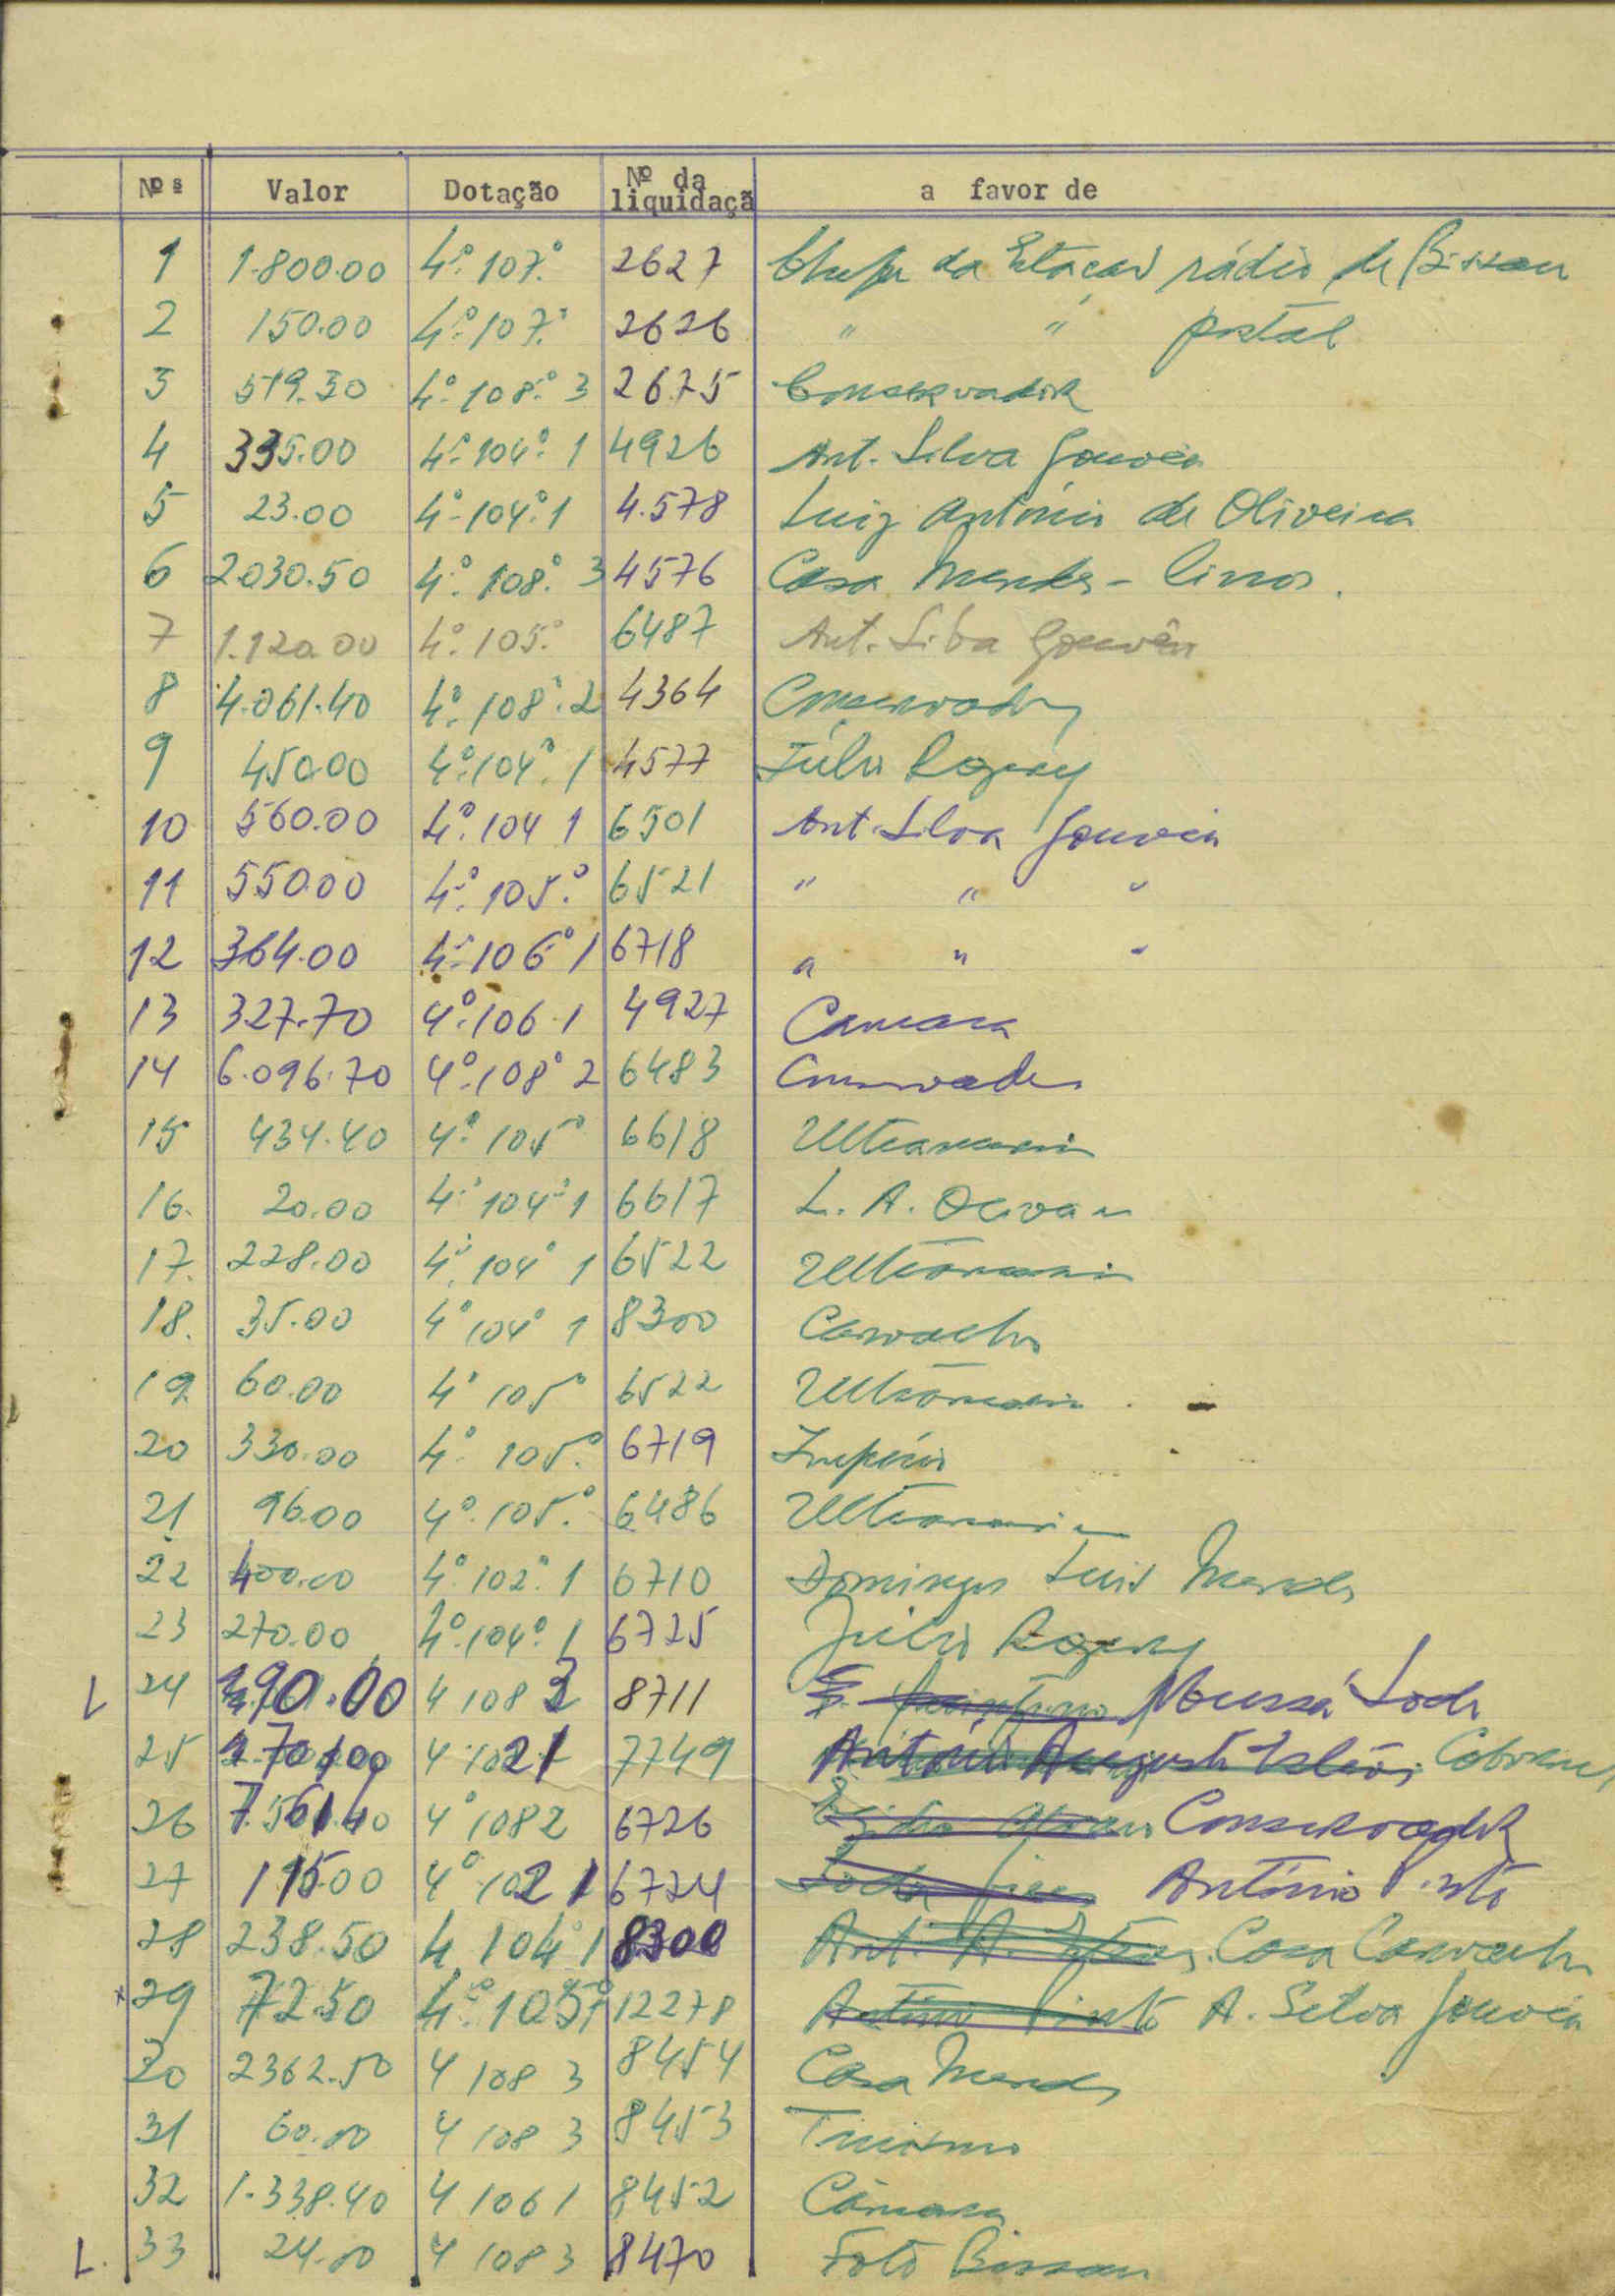 Nº s Valor Dotação Nº da liquidaçã a favor de
1 1.800.00 4º. 107.º 2627 Chefe da Estação rádio de Bissau
2 150.00 4º. 107.º 2626 " " postal
3 519.30 4º. 108.º 3 2675 Conservador
4 335.00 4º. 104.º 1 4926 Ant. Silva Gouveia
5 23.00 4º. 104.º 1 4.578 Luiz António de Oliveira
6 2030.50 4º. 108.º 3 4576 Casa Mendes -
7 1.120.00 4º. 105.º 6487 Ant. Silva Gouvêa
8 4.061.40 4º. 108.º 2 4364 Conservador
9 450.00 4º. 104.º 1 4577 Júlio
10 560.00 4º. 104 1 6501 Ant. Silva Gouveia
11 550.00 4º. 105.º 6521 " " "
12 364.00 4º. 106º 1 6718 " " "
13 327.70 4º. 106 1 4927 Camara
14 6.096.70 4º. 108º 2 6483 Conservador
15 434.40 4º. 105º 6618 Ultramarina
16. 20.00 4º. 104º 1 6617 L. A. Oliveira
17. 228.00 4º. 104º 1 6522 Ultramarina
18. 35.00 4º 104º 1 8300 Carvalho
19. 60.00 4º 105º 6522 Ultramarina
20 330.00 4º. 105.º 6719 Império
21 96.00 4º. 105.º 6486 Ultramarina
22 400.00 4º. 102.º 1 6710 Domingos Luis Mendes
23 270.00 4º. 104.º 1 6725 Júlio
L 24 4 108 3 8711 Moussá
25 4 102 1 7749 António Augusto Esteves
26 7.561.40 4º 108 2 6726 Conservador
27 115.00 4º 102 1 6724 António Pinto
28 238.50 4 104º 1 8300 Ant. A. Esteves Casa Carvalho
29 72.50 4º. 105º 12278 António Pinto A. Silva Gouveia
30 2362.50 4 108 3 8454 Casa Mendes
31 60.00 4 108 3 8453 Turismo
32 1.338.40 4 106 1 8452 Câmara
L. 33 24.00 4 108 3 8470 Foto Bissau